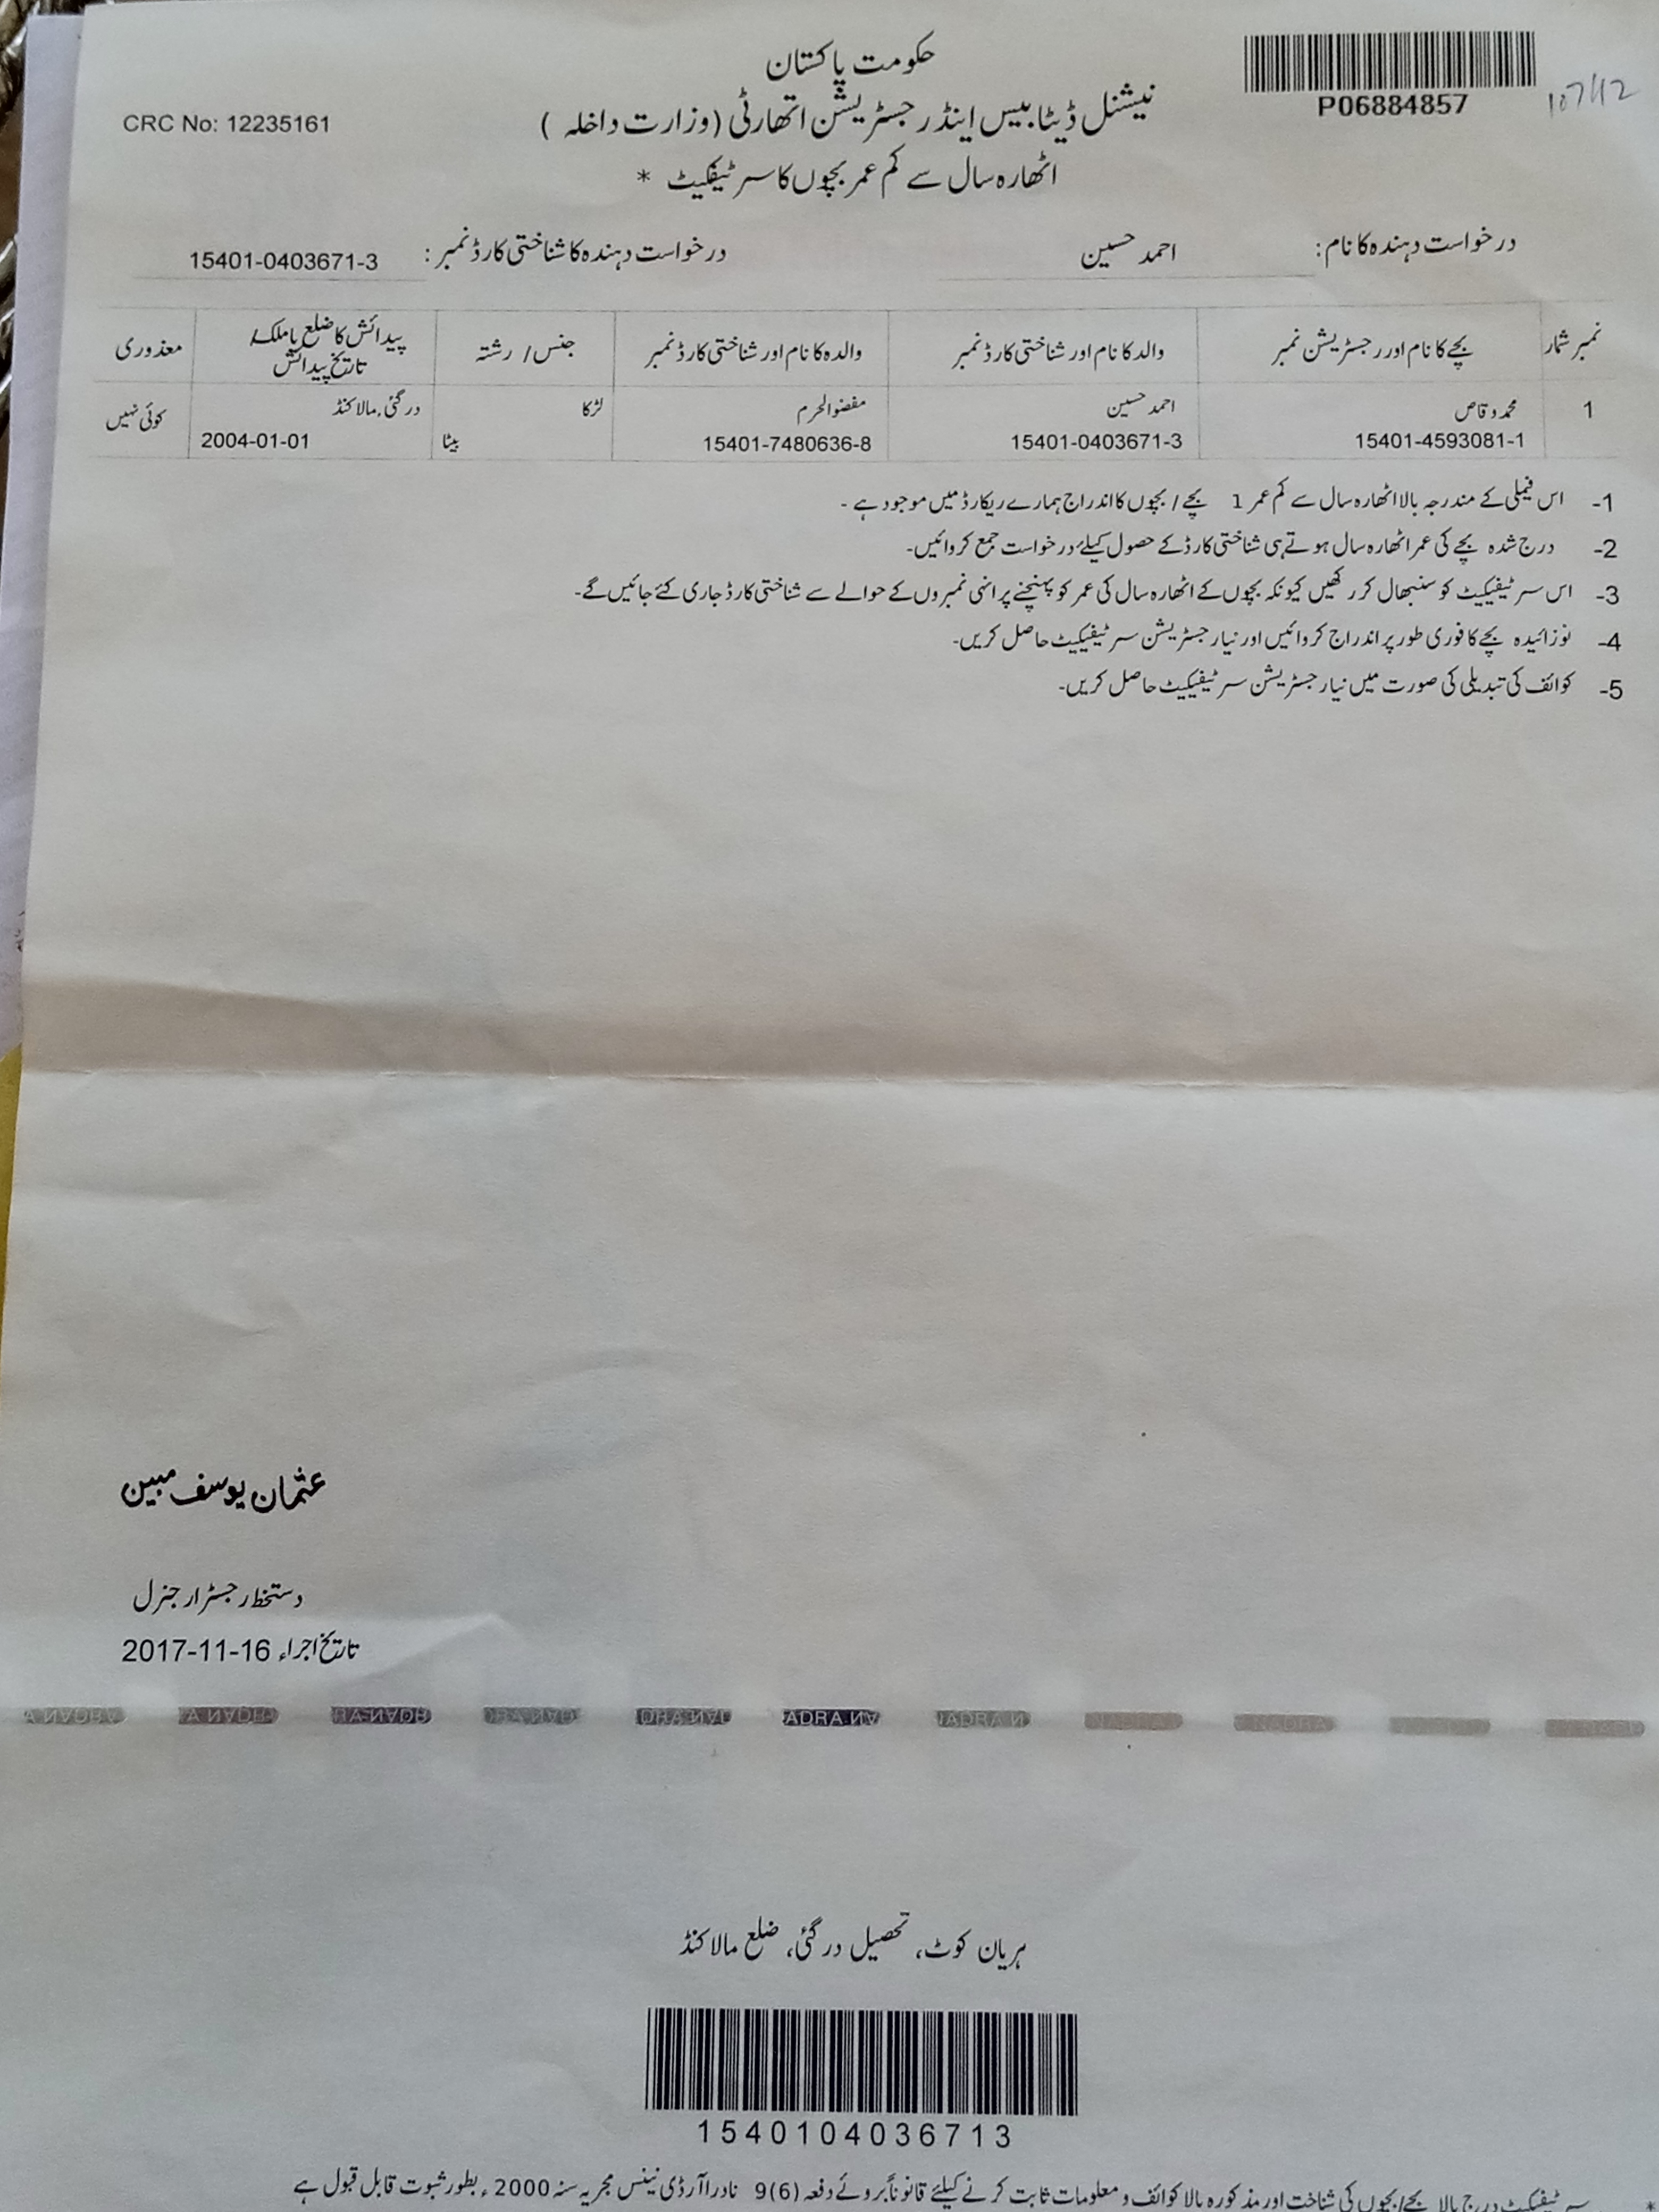 حکومت پاکستان
P06884857
107/12
CRC No: 12235161
نیشنل ڈیٹا بیس اینڈ رجسٹریشن اتھارٹی (وزارت داخلہ )
اٹھارہ سال سے کم عمر بچوں کا سرٹیفکیٹ *
درخواست دہندہ کا نام: احمد حسین درخواست دہندہ کا شناختی کارڈ نمبر : 15401-0403671-3
نمبر شمار بچے کا نام اور رجسٹریشن نمبر والد کا نام اور شناختی کارڈ نمبر والدہ کا نام اور شناختی کارڈ نمبر جنس / رشتہ پیدائش کا ضلع یا ملک/ معذوری
تاریخ پیدائش
1 محمد وقاص احمد حسین لڑکا درگئی، مالاکنڈ کوئی نہیں
15401-4593081-1 15401-0403671-3 15401-7480636-8 بیٹا 2004-01-01
1- اس فیملی کے مندرجہ بالا اٹھارہ سال سے کم عمر 1 بچے / بچوں کا اندراج ہمارے ریکارڈ میں موجود ہے -
2- درج شدہ بچے کی عمر اٹھارہ سال ہوتے ہی شناختی کارڈ کے حصول کیلئے درخواست جمع کروائیں-
3- اس سرٹیفیکیٹ کو سنبھال کر رکھیں کیونکہ بچوں کے اٹھارہ سال کی عمر کو پہنچنے پر انہی نمبروں کے حوالے سے شناختی کارڈ جاری کئے جائیں گے-
4- نوزائیدہ بچے کا فوری طور پر اندراج کروائیں اور نیا رجسٹریشن سرٹیفیکیٹ حاصل کریں-
5- کوائف کی تبدیلی کی صورت میں نیا رجسٹریشن سرٹیفیکیٹ حاصل کریں-
عثمان یوسف مبین
دستخط رجسٹرار جنرل
تاریخ اجراء 2017-11-16
ہریان کوٹ، تحصیل درگئی، ضلع مالاکنڈ
1540104036713
* سرٹیفکیٹ درج بالا بچے/بچوں کی شناخت اور مذکورہ بالا کوائف و معلومات ثابت کرنے کیلئے قانوناً بروئے دفعہ (6)9 نادرا آرڈی نینس مجریہ سنہ 2000ء بطور ثبوت قابل قبول ہے